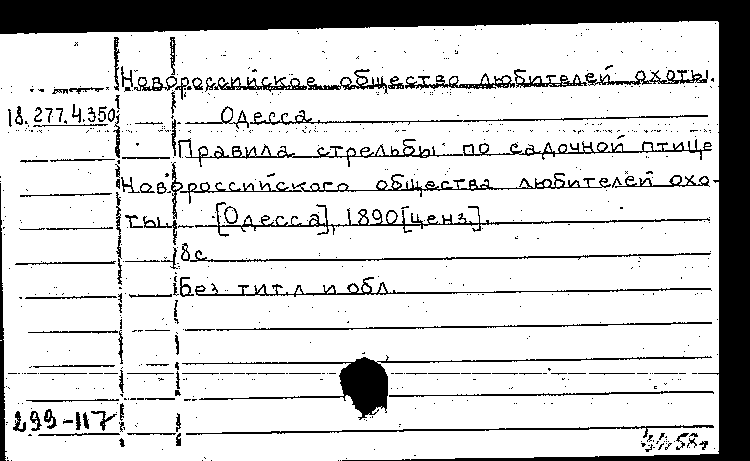 Новороссийское общество любителей охоты.
18.277.4.350 Одесса.
Правила стрельбы по садочной птице
Новороссийского общества любителей охо-
ты. [Одесса], 1890 [ценз.].
8с
Без тит.л и обл.
299-117